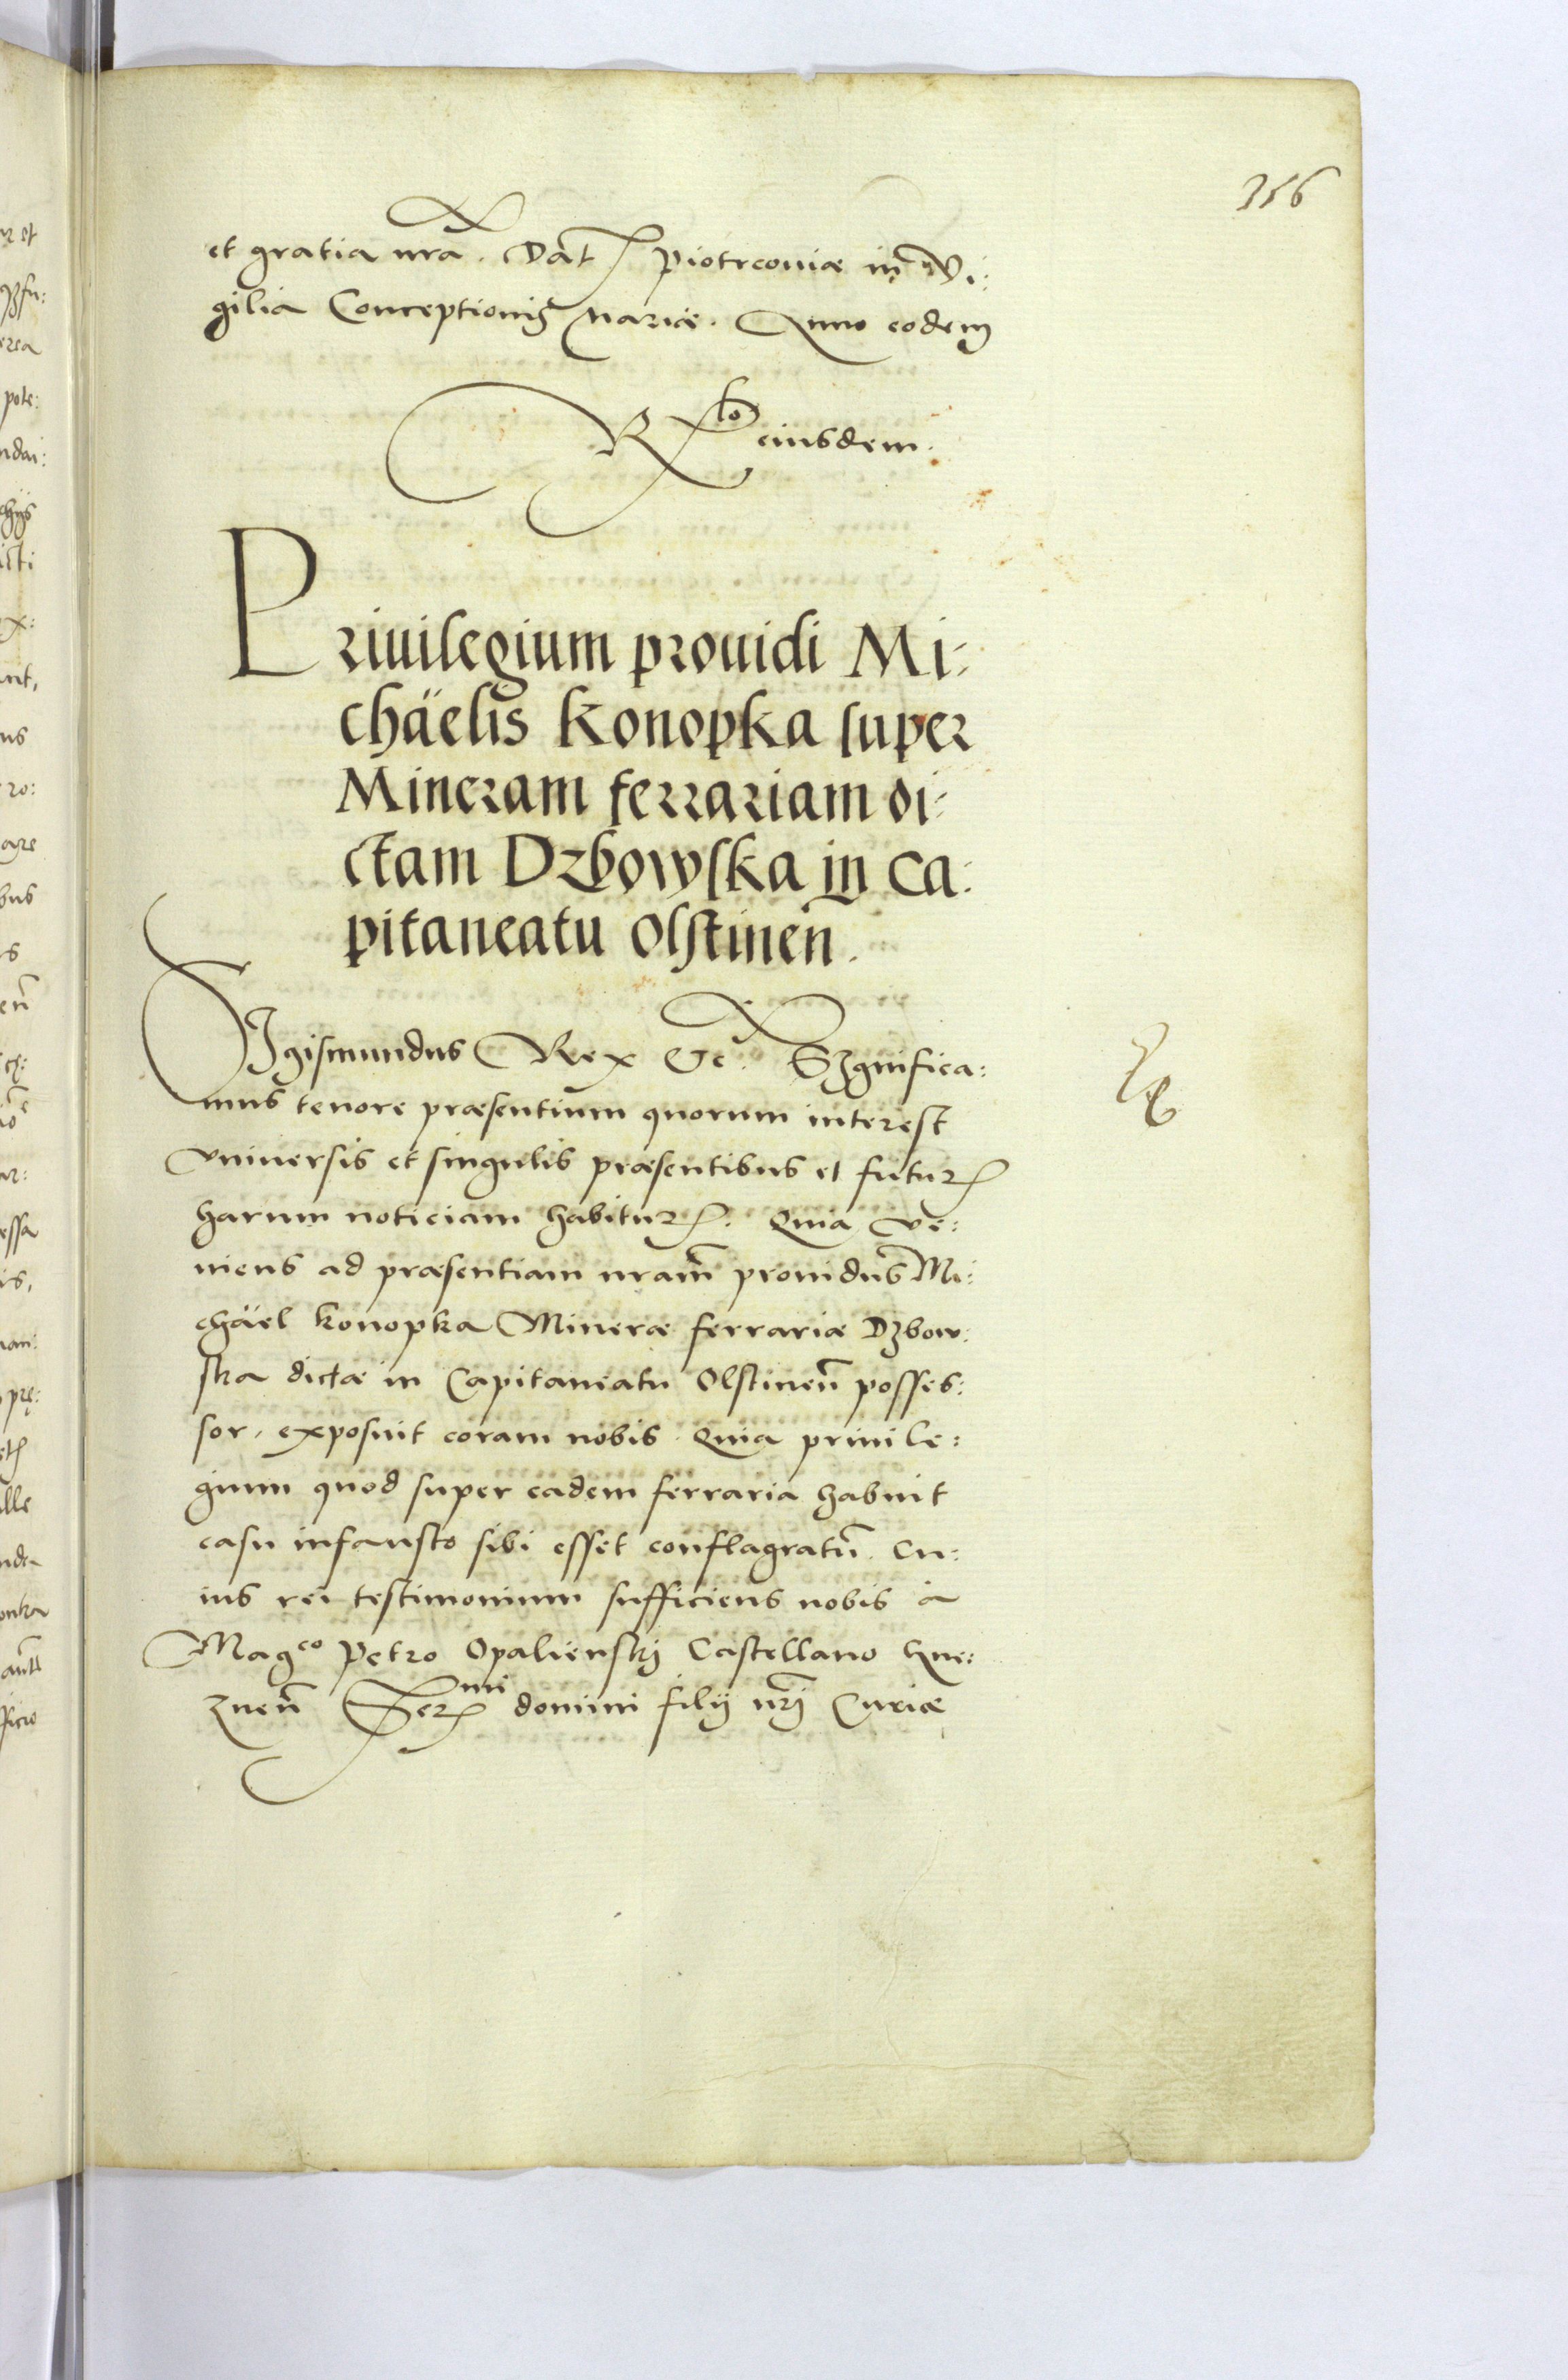 356
et gratia nrã. Dat Piotrcouiæ in Vi:
gilia Conceptionis Mariæ. Anno eodem
Rlo eiusdem.
Priuilegium prouidi Mi:
chäelis Konopka super
Mineram ferrariam di:
ctam Dzbowska in Ca:
pitaneatu Olstinen̄.
SIgismundus Rex Etc. SIgnifica:
mus tenore præsentium quorum interest
vniuersis et singulis præsentibus et futur
harum noticiam habitur. Quia ve:
niens ad præsentiam nram̄ prouidus Mi:
chäel Konopka Mineræ ferrariæ Dzbow:
ska dictæ in Capitaneatu Olstinen̄ posses:
sor, exposuit coram nobis. Quia priuile:
gium quod super eadem ferraria habuit
casu infausto sibi esset conflagratū. Cu:
ius rei testimonium sufficiens nobis à
Magco Petro Opalienskj Castellano Gne:
znen̄ Sermi domini filij nrj Curiæ